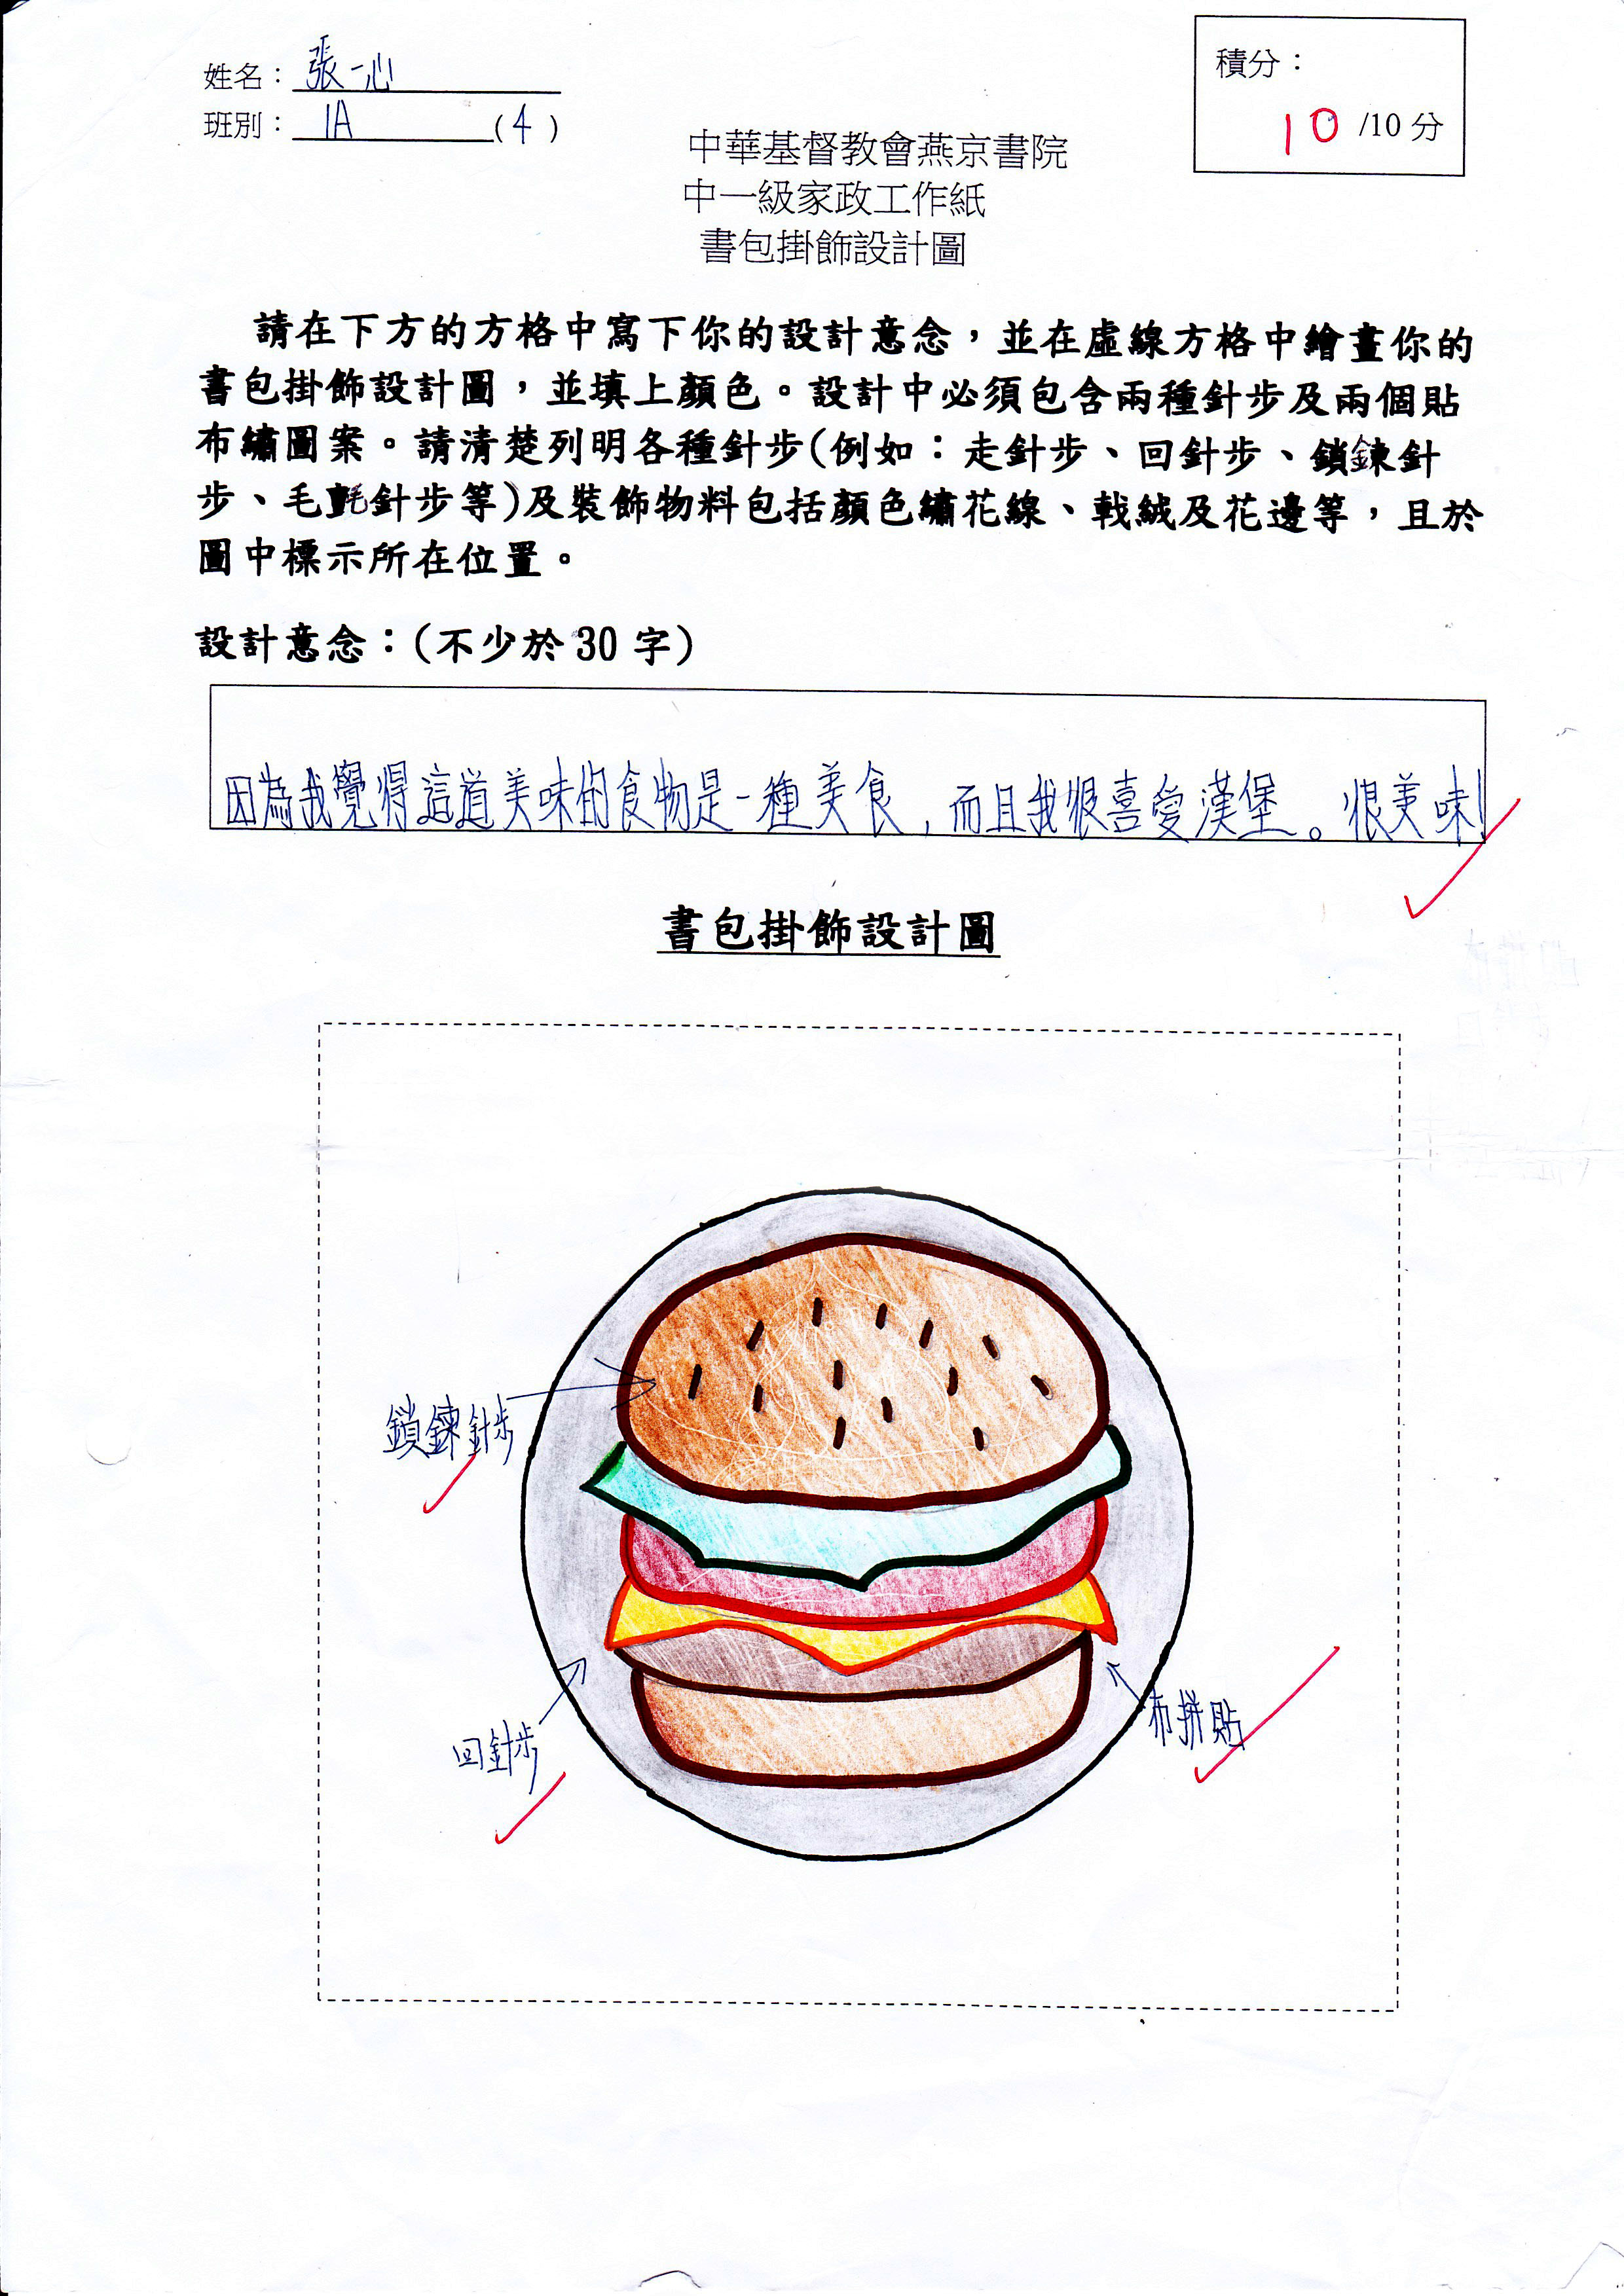 姓名：張一心
班別：1A (4)
積分：
10 /10 分
中華基督教會燕京書院
中一級家政工作紙
書包掛飾設計圖
請在下方的方格中寫下你的設計意念，並在虛線方格中繪畫你的
書包掛飾設計圖，並填上顏色。設計中必須包含兩種針步及兩個貼
布繡圖案。請清楚列明各種針步(例如：走針步、回針步、鎖鍊針
步、毛氈針步等)及裝飾物料包括顏色繡花線、戟絨及花邊等，且於
圖中標示所在位置。
設計意念：(不少於 30 字)
因為我覺得這道美味的食物是一種美食，而且我很喜愛漢堡。很美味!
書包掛飾設計圖
鎖鍊針步
回針步
布拼貼